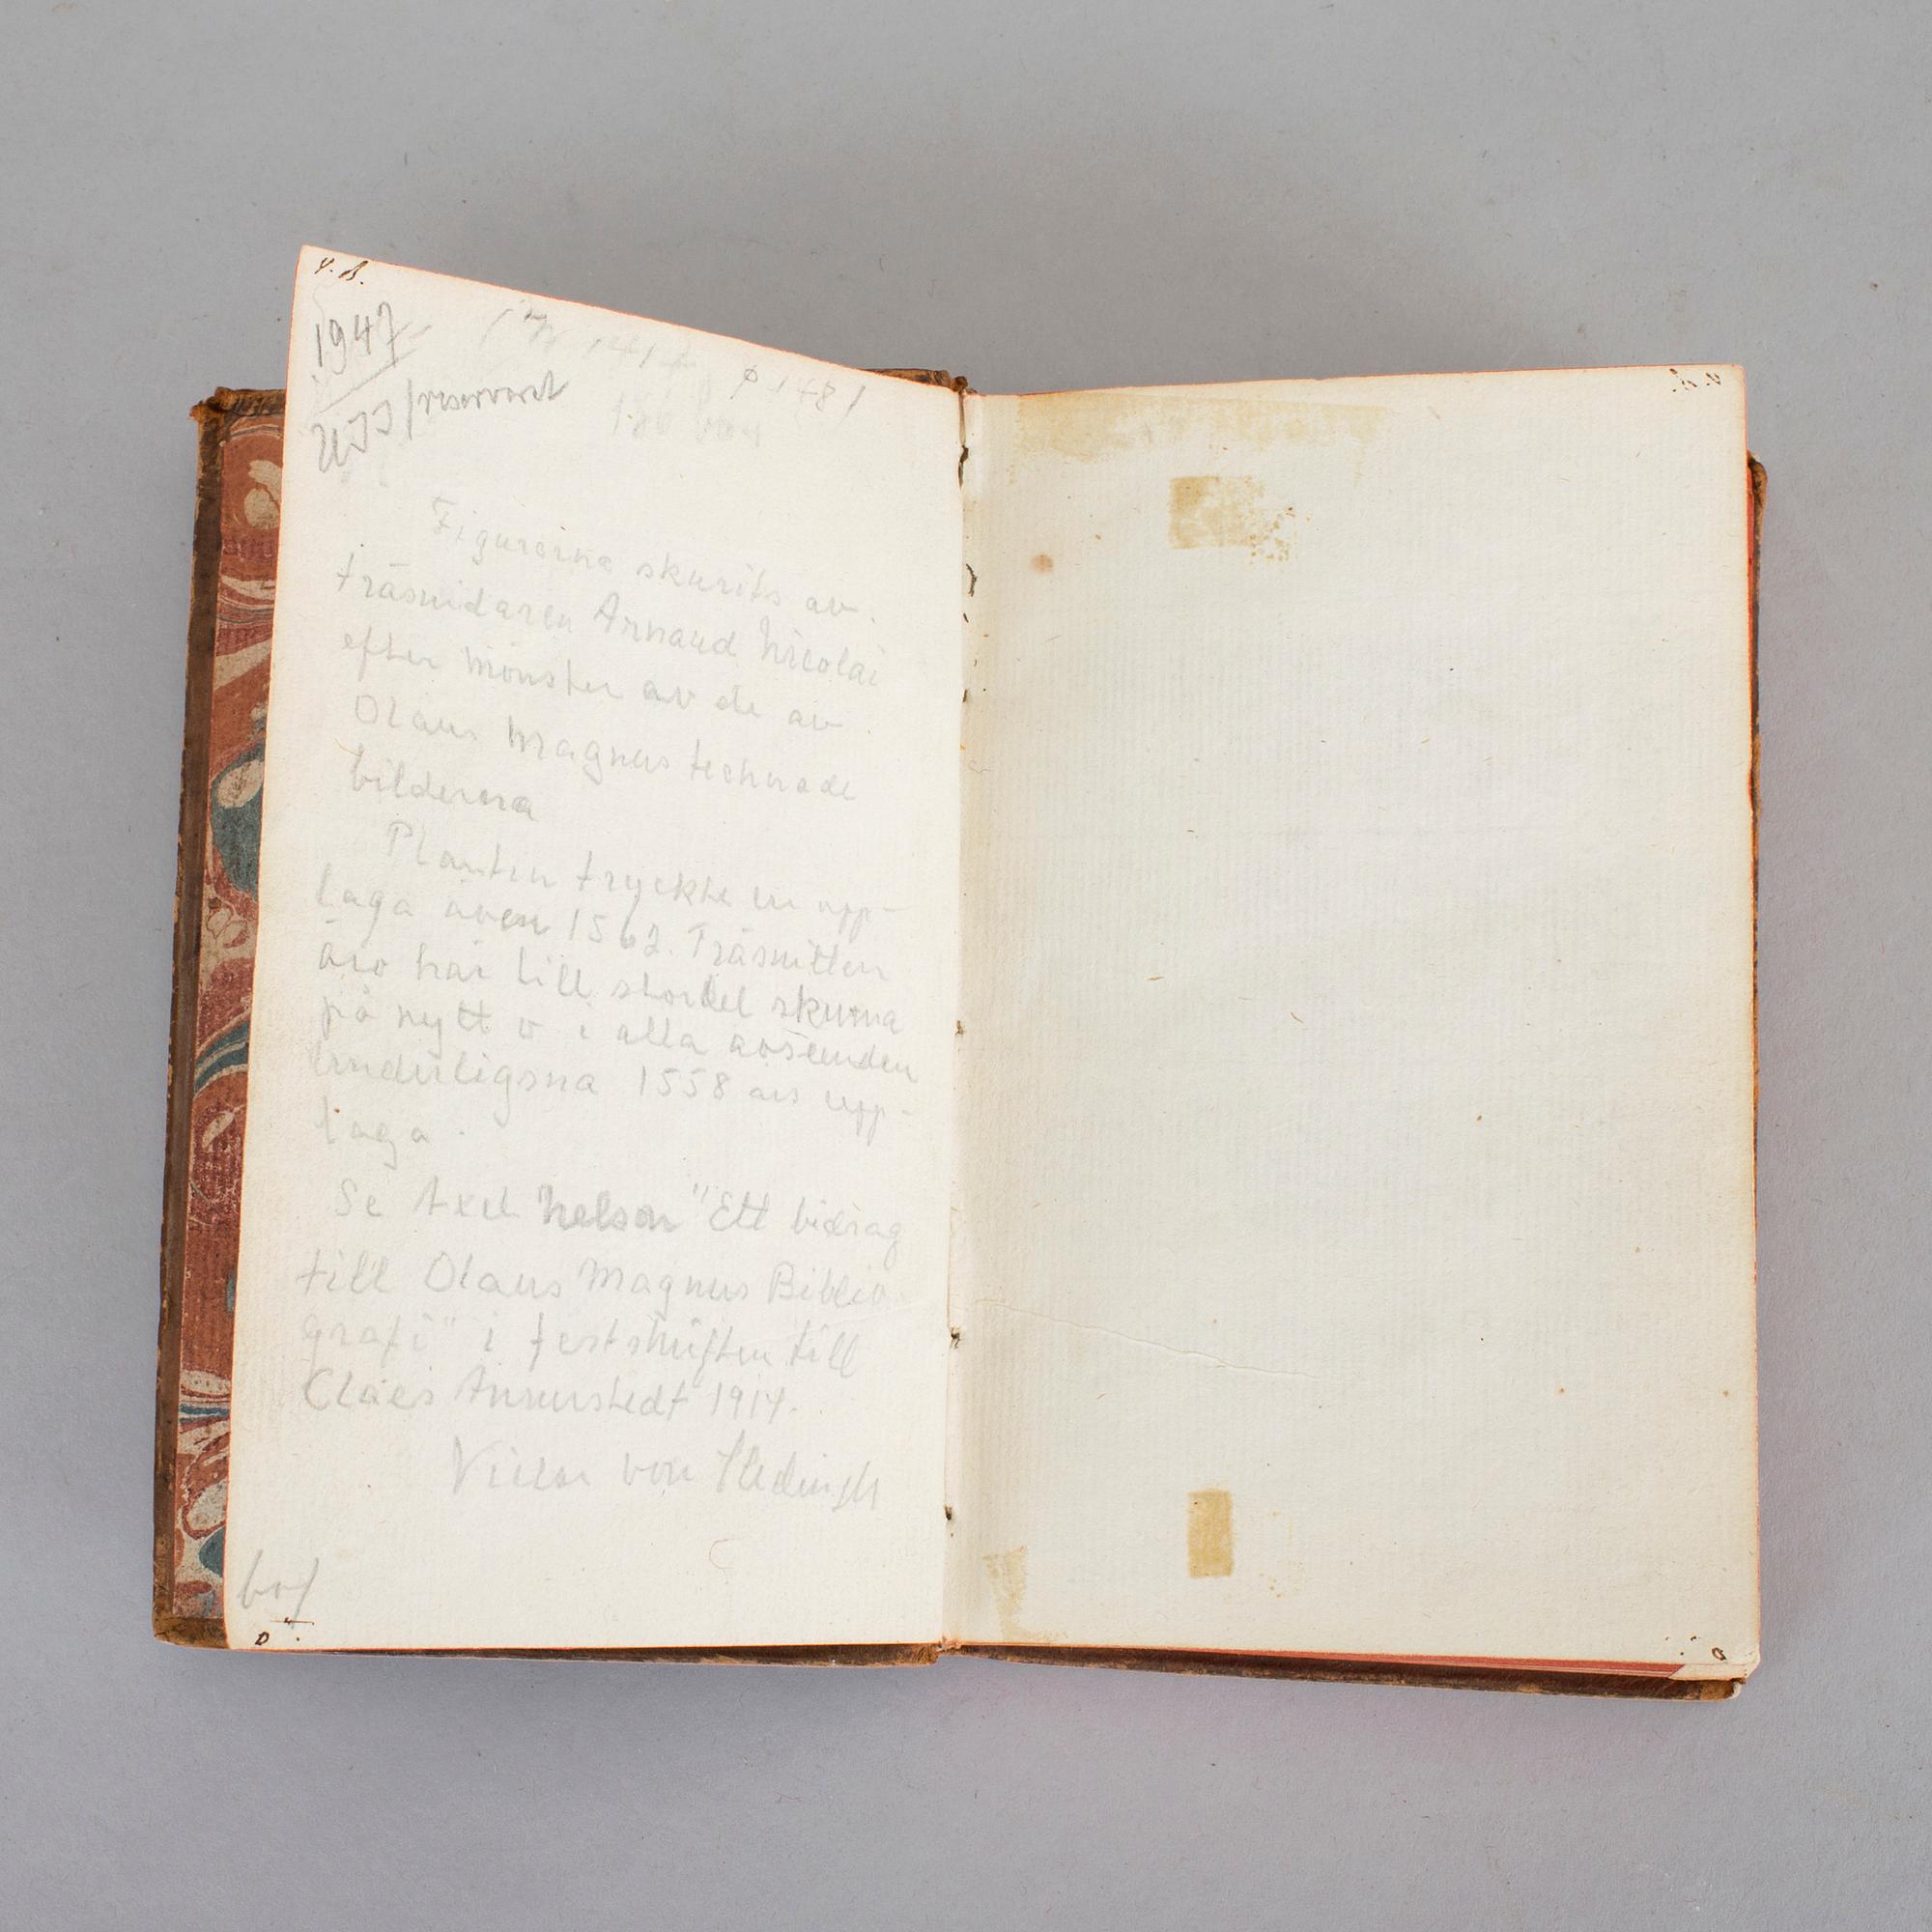 1947
reserverat
Figurerna skurits av
träsnidaren Arnaud Nicolai
efter mönster av de av
Olaus Magnus technade
bilderna
Plantin tryckte en upp-
laga även 1562. Träsnitten
äro här till stordel skurna
på nytt o i alla avseenden
underlägsna 1558 års upp-
laga.
Se Axel Nelson "Ett bidrag
till Olaus Magnus Biblio
grafi" i festskriften till
Claes Annerstedt 1914.
Victor von Stedingk